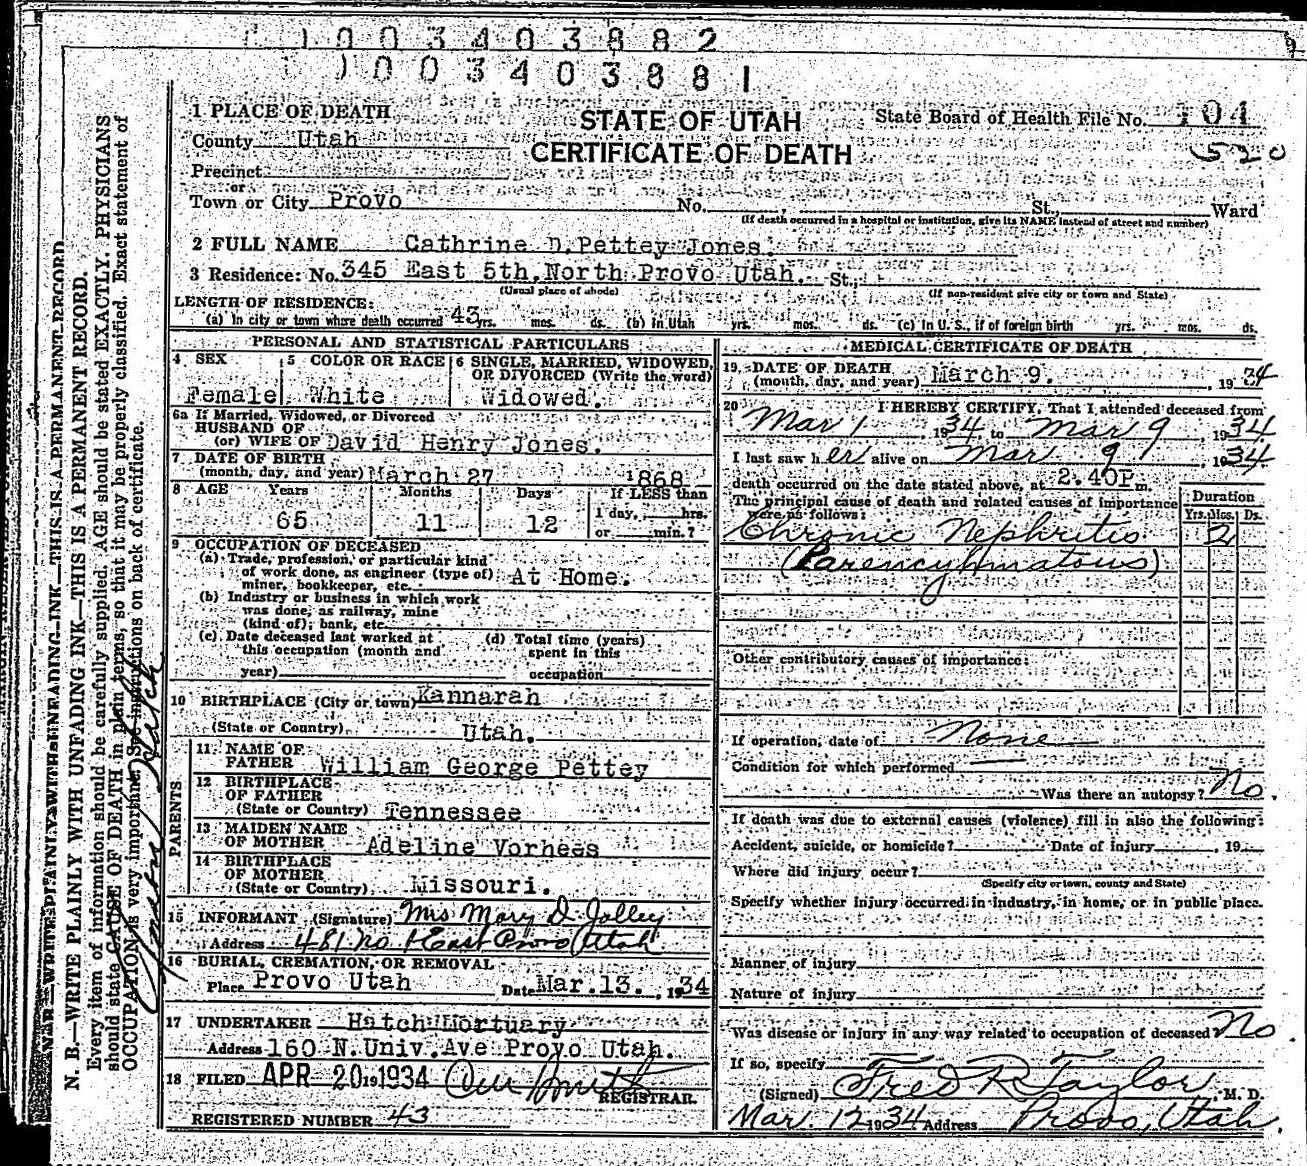 1003403882
1003403881
1 PLACE OF DEATH
STATE OF UTAH
CERTIFICATE OF DEATH
State Board of Health File No. 104
520
County Utah
Precinct
or
Town or City Provo No. St., Ward
(If death occurred in a hospital or institution, give its NAME instead of street and number)
2 FULL NAME Cathrine D. Pettey Jones.
3 Residence: No. 345 East 5th. North Provo Utah. St.,
(Usual place of abode) (If non-resident give city or town and State)
LENGTH OF RESIDENCE:
(a) In city or town where death occurred 43 yrs. mos. ds. (b) In Utah yrs. mos. ds. (c) In U. S., if of foreign birth yrs. mos. ds.
PERSONAL AND STATISTICAL PARTICULARS
4 SEX Female
5 COLOR OR RACE White
6 SINGLE, MARRIED, WIDOWED, OR DIVORCED (Write the word) Widowed.
6a If Married, Widowed, or Divorced
HUSBAND OF
(or) WIFE OF David Henry Jones.
7 DATE OF BIRTH
(month, day, and year) March 27 1868
8 AGE Years 65 Months 11 Days 12 If LESS than 1 day, hrs. or min.?
9 OCCUPATION OF DECEASED
(a) Trade, profession, or particular kind
of work done, as engineer (type of)
miner, bookkeeper, etc. At Home.
(b) Industry or business in which work
was done, as railway, mine
(kind of); bank, etc.
(c) Date deceased last worked at
this occupation (month and
year)
(d) Total time (years)
spent in this
occupation
10 BIRTHPLACE (City or town) Kannarah
(State or Country) Utah.
PARENTS
11 NAME OF
FATHER William George Pettey
12 BIRTHPLACE
OF FATHER
(State or Country) Tennessee
13 MAIDEN NAME
OF MOTHER Adeline Vorhees
14 BIRTHPLACE
OF MOTHER
(State or Country) Missouri.
15 INFORMANT (Signature) Mrs Mary D. Jolley
Address 481 No 1 East Provo Utah
16 BURIAL, CREMATION, OR REMOVAL
Place Provo Utah Date Mar. 13. , 1934
17 UNDERTAKER Hatch Mortuary
Address 160 N. Univ. Ave Provo Utah.
18 FILED APR 20 1934
REGISTRAR.
REGISTERED NUMBER 43
MEDICAL CERTIFICATE OF DEATH
19. DATE OF DEATH
(month, day, and year) March 9. , 1934
20 I HEREBY CERTIFY, That I attended deceased from
Mar 1 , 1934 to Mar 9 , 1934
I last saw her alive on Mar 9 , 1934
death occurred on the date stated above, at 2:40P m.
The principal cause of death and related causes of importance
were as follows:
Duration
Yrs. Mos. Ds.
Chronic Nephritis 2
(Parencyhmatous)
Other contributory causes of importance:
If operation, date of None
Condition for which performed
Was there an autopsy? No.
If death was due to external causes (violence) fill in also the following:
Accident, suicide, or homicide? Date of injury , 19
Where did injury occur?
(Specify city or town, county and State)
Specify whether injury occurred in industry, in home, or in public place.
Manner of injury
Nature of injury
Was disease or injury in any way related to occupation of deceased? No
If so, specify
(Signed) Fred R Taylor M. D.
Mar. 12 1934 Address Provo, Utah.
N. B.—WRITE PLAINLY WITH UNFADING INK—THIS IS A PERMANENT RECORD.
Every item of information should be carefully supplied. AGE should be stated EXACTLY. PHYSICIANS
should state CAUSE OF DEATH in plain terms, so that it may be properly classified. Exact statement of
OCCUPATION is very important. See instructions on back of certificate.